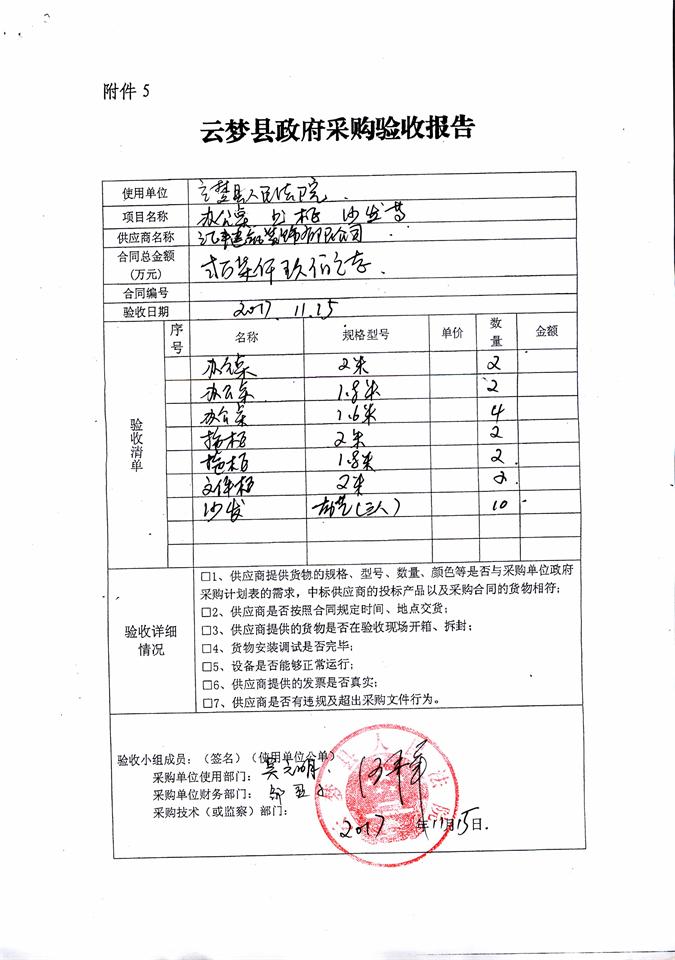 附件 5
云梦县政府采购验收报告
使用单位 云梦县人民法院
项目名称 办公桌 文柜 沙发等
供应商名称 装饰有限公司
合同总金额(万元) 玖佰元
合同编号
验收日期 2017.11.15
验收清单 序号 名称 规格型号 单价 数量 金额
办公桌 2米 2
办公桌 1.8米 2
办公桌 1.6米 4
2米 2
1.8米 2
文件柜 2米 2
沙发 (三人) 10
验收详细情况
□1、供应商提供货物的规格、型号、数量、颜色等是否与采购单位政府
采购计划表的需求，中标供应商的投标产品以及采购合同的货物相符;
□2、供应商是否按照合同规定时间、地点交货;
□3、供应商提供的货物是否在验收现场开箱、拆封;
□4、货物安装调试是否完毕;
□5、设备是否能够正常运行;
□6、供应商提供的发票是否真实;
□7、供应商是否有违规及超出采购文件行为。
验收小组成员：（签名）（使用单位公单）
采购单位使用部门：
采购单位财务部门：
采购技术（或监察）部门：
2017 年11月15日.